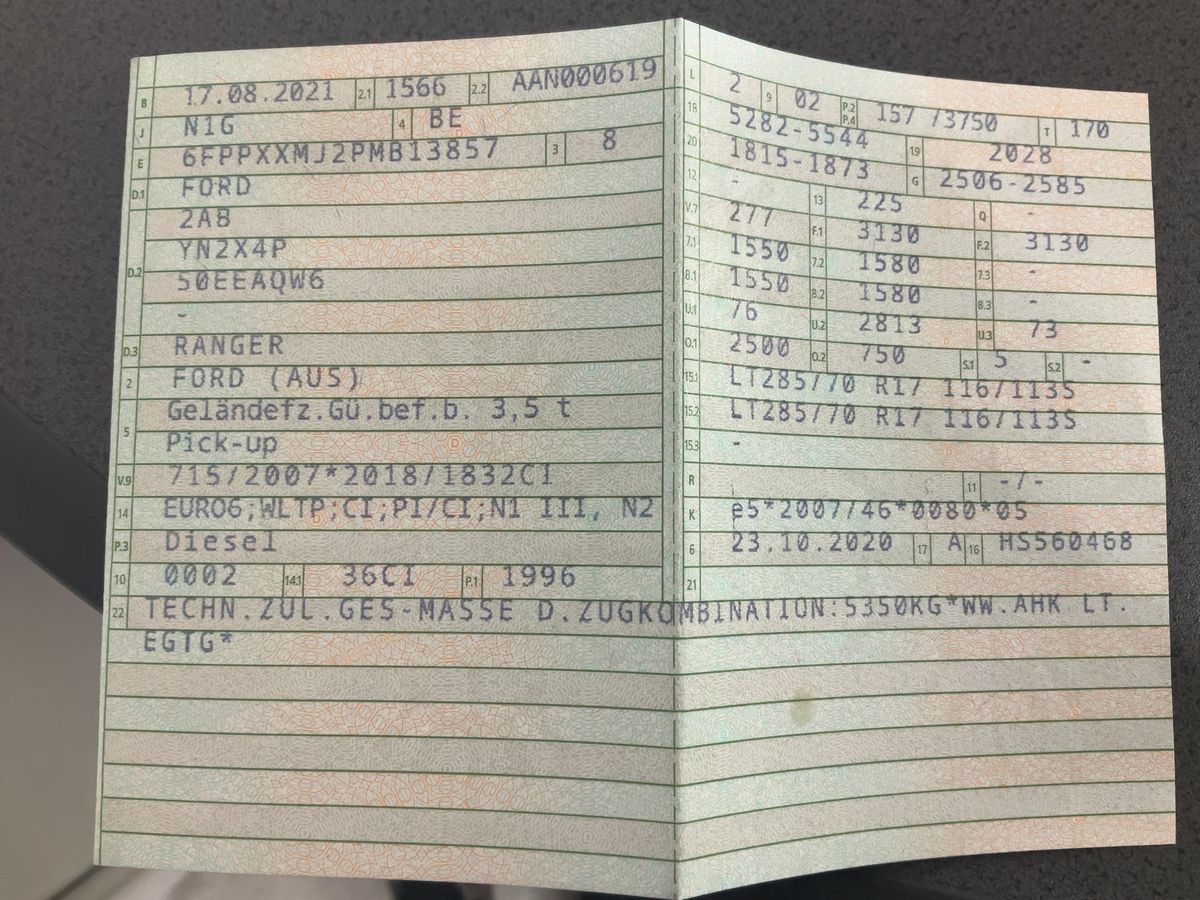 B 17.08.2021 2.1 1566 2.2 AAN000619
J N1G 4 BE
E 6FPPXXMJ2PMB13857 3 8
D.1 FORD
D.2 2AB
YN2X4P
50EEAQW6
-
D.3 RANGER
2 FORD (AUS)
5 Geländefz.Gü.bef.b. 3,5 t
Pick-up
V.9 715/2007*2018/1832CI
14 EURO6;WLTP;CI;PI/CI;N1 III, N2
P.3 Diesel
10 0002 14.1 36CI P.1 1996
L 2 9 02 P.2 P.4 157 /3750 T 170
18 5282-5544 19 2028
20 1815-1873 G 2506-2585
12 - 13 225 Q -
V.7 277 F.1 3130 F.2 3130
7.1 1550 7.2 1580 7.3 -
8.1 1550 8.2 1580 8.3 -
U.1 76 U.2 2813 U.3 73
O.1 2500 O.2 750 S.1 5 S.2 -
15.1 LT285/70 R17 116/113S
15.2 LT285/70 R17 116/113S
15.3 -
R 11 -/-
K e5*2007/46*0080*05
6 23.10.2020 17 A 16 HS560468
21
22 TECHN.ZUL.GES-MASSE D.ZUGKOMBINATION:5350KG*WW.AHK LT.
EGTG*